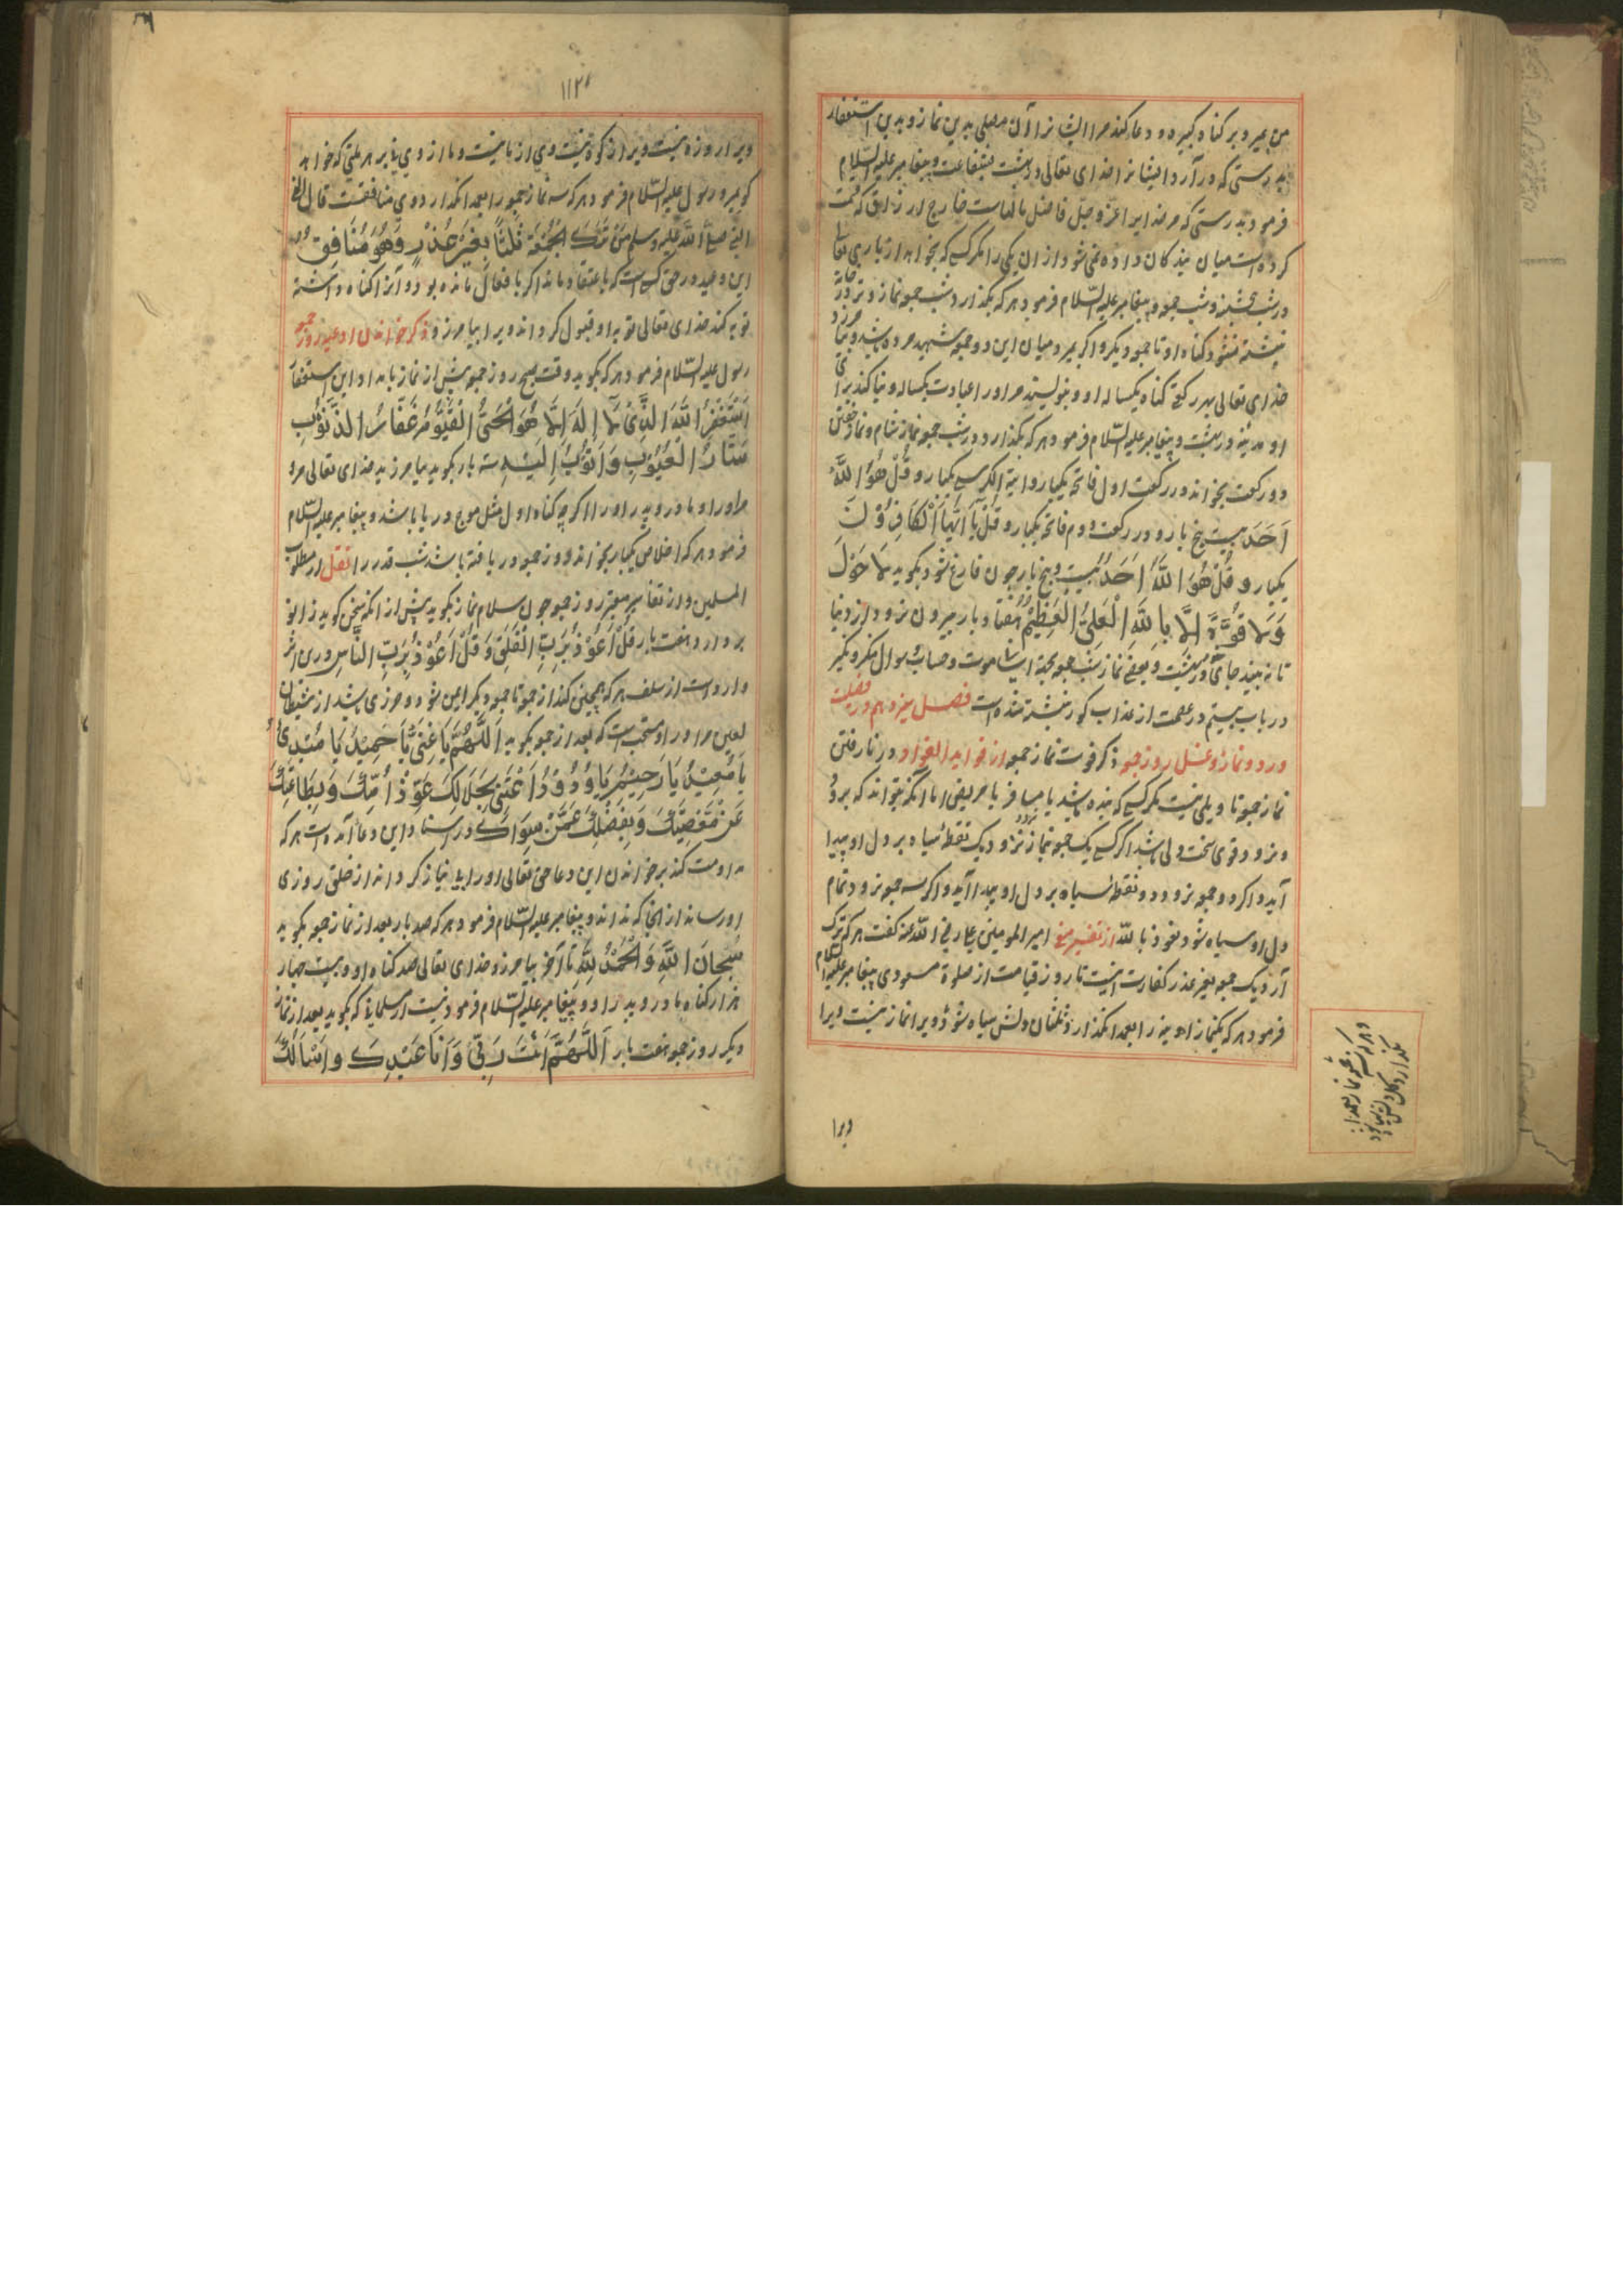 من بمیرد بر کناه کبیره و دعا کند مر ایشانرا آن مصلی بدین نماز و بدین استغفار
بدرستی که در آرد ایشانرا خدای تعالی در بهشت بشفاعت و پیغامبر علیه السلام
فرمود بدرستی که مر خدایرا عز و جل فاضل مانده است خارج ارزاق که قسمت
کرده است میان بندکان داده نمی شود از ان یکی را مکر کسی که بخواهد از باری تعالی
در شب پنجشنبه و شب جمعه و پیغامبر علیه السلام فرمود هر که بکذارد شب جمعه نماز
نبشته نشود کناه او تا جمعه دیکر و اکر بمیرد میان این دو جمعه شهید مرده باشد
خدای تعالی بهر رکعتی کناه یکساله او و بنویسند مر او را عبادت یکساله و بنا کند برای
او مدینه در بهشت و پیغامبر علیه السلام فرمود هر که بکذارد در شب جمعه نماز شام و نماز خفتن
دو رکعت بخواند در رکعت اول فاتحه یکبار و ایة الکرسی یکبار و قُلْ هُوَ اللَّهُ
اَحَد بیست پنج بار و در رکعت دوم فاتحه یکبار و قُلْ یَا اَیُّهَا الْکَافِرُوْنَ
یکبار و قُلْ هُوَ اللَّهُ اَحَدٌ بیست و پنج بار چون فارغ شود بکوید لَا حَوْلَ
وَلَا قُوَّةَ اِلَّا بِاللَّهِ الْعَلِیِّ الْعَظِیْمِ هفتاد بار بیرون نرود از دنیا
تا نه بیند جای در بهشت و بعضی نماز شب جمعه بجهة اسانی موت و حساب و سوال منکر و نکیر
در باب بیستم در عصمت از عذاب کور نبشته شده است فصل سیزدهم در فضیلت
ورد و نماز و غسل روز جمعه ذکر فوت نماز جمعه از فواید الفواد در نارفتن
نماز جمعه تاویلی نیست مکر کسی که بنده باشد یا مسافر یا مریض اما انکه بتواند که برود
و نرود قوی سخت دلی باشد اکر کسی یک جمعه نماز نرود یک نقطه سیاه بر دل او پیدا
آید و اکر دو جمعه نرود دو نقطه سیاه بر دل او پیدا آید و اکر سه جمعه نرود تمام
دل او سیاه شود نعوذ بالله از تفسیر امیر المومنین علی رضی الله عنه کفت هر که ترک
آرد یک جمعه بغیر عذر کفارت نیست تا روز قیامت از صلوة مسعودی پیغامبر علیه السلام
فرمود هر که یکنماز اوینه را بعمدا نکذارد ثلثان دلش سیاه شود ویرا نماز نیست ویرا
ویرا
ویرا روزه نیست ویرا زکوة نیست وی از ما نیست و ما از وی نایم بر هر ملتی که خواهد
کو بمیر و رسول علیه السلام فرمود هر که سه نماز جمعه را بعمدا نکذارد وی منافقست قال
النبی صلی الله علیه وسلم مَنْ تَرَکَ الجُمُعَةَ ثَلٰثًا بِغَیْرِ عُذْرٍ فَهُوَ مُنَافِقٌ
این وعید در حق کسی است که باعتقاد ماند اکر بافعال مانده بود و آنرا کناه دانسته
توبه کند خدای تعالی توبه او قبول کرداند ویرا بیامرزد ذکر خواندن ادعیه روز جمعه
رسول علیه السلام فرمود هر که بکوید وقت صبح روز جمعه پیش از نماز بامداد این استغفار
اَسْتَغْفِرُ اللَّهَ الَّذِیْ لَا اِلٰهَ اِلَّا هُوَ الْحَیُّ الْقَیُّوْمُ غَفَّارُ الذُّنُوْبِ
سَتَّارُ الْعُیُوْبِ وَاَتُوْبُ اِلَیْهِ سه بار بکوید بیامرزید خدای تعالی مر
مر او را و مادر و پدر او را اکر چه کناه او مثل موج دریا باشد و پیغامبر علیه السلام
فرمود هر که اخلاص یکبار بخواند روز جمعه دریافته باشد شب قدر را نقل از مطلوب
المسلمین و از تفاسیر معتبر روز جمعه چون سلام نماز بکوید پیش از انکه سخن کوید زانو
بردارد و هفت بار قُلْ اَعُوْذُ بِرَبِّ الْفَلَقِ وَقُلْ اَعُوْذُ بِرَبِّ النَّاسِ درین اثر
وارد است از سلف هر که همچنین کند از جمعه تا جمعه دیکر ایمن شود و حرزی باشد از شیطان
لعین مر او را و مستحب است که بعد از جمعه بکوید اَللّٰهُمَّ یَا غَنِیُّ یَا حَمِیْدُ یَا مُبْدِئُ
یَا مُعِیْدُ یَا رَحِیْمُ یَا وَدُوْدُ اَغْنِنِیْ بِحَلَالِکَ عَنْ حَرَامِکَ وَبِطَاعَتِکَ
عَنْ مَعْصِیَتِکَ وَبِفَضْلِکَ عَمَّنْ سِوَاکَ در اسناد این دعا آمده است هر که
مداومت کند برخواندن این دعا حق تعالی او را بی نیاز کرداند از خلق روزی
او رساند از انجا که نداند و پیغامبر علیه السلام فرمود هر که صد بار بعد از نماز جمعه بکوید
سُبْحَانَ اللَّهِ وَالْحَمْدُ لِلَّهِ تا آخر بیامرزد خدای تعالی صد کناه او و بیست چهار
هزار کناه مادر و پدر او و پیغامبر علیه السلام فرمود نیست از مسلمانی که بکوید بعد از نماز
دیکر روز جمعه هفت بار اَللّٰهُمَّ اَنْتَ رَبِّیْ وَاَنَا عَبْدُکَ وَاَسْاَلُکَ